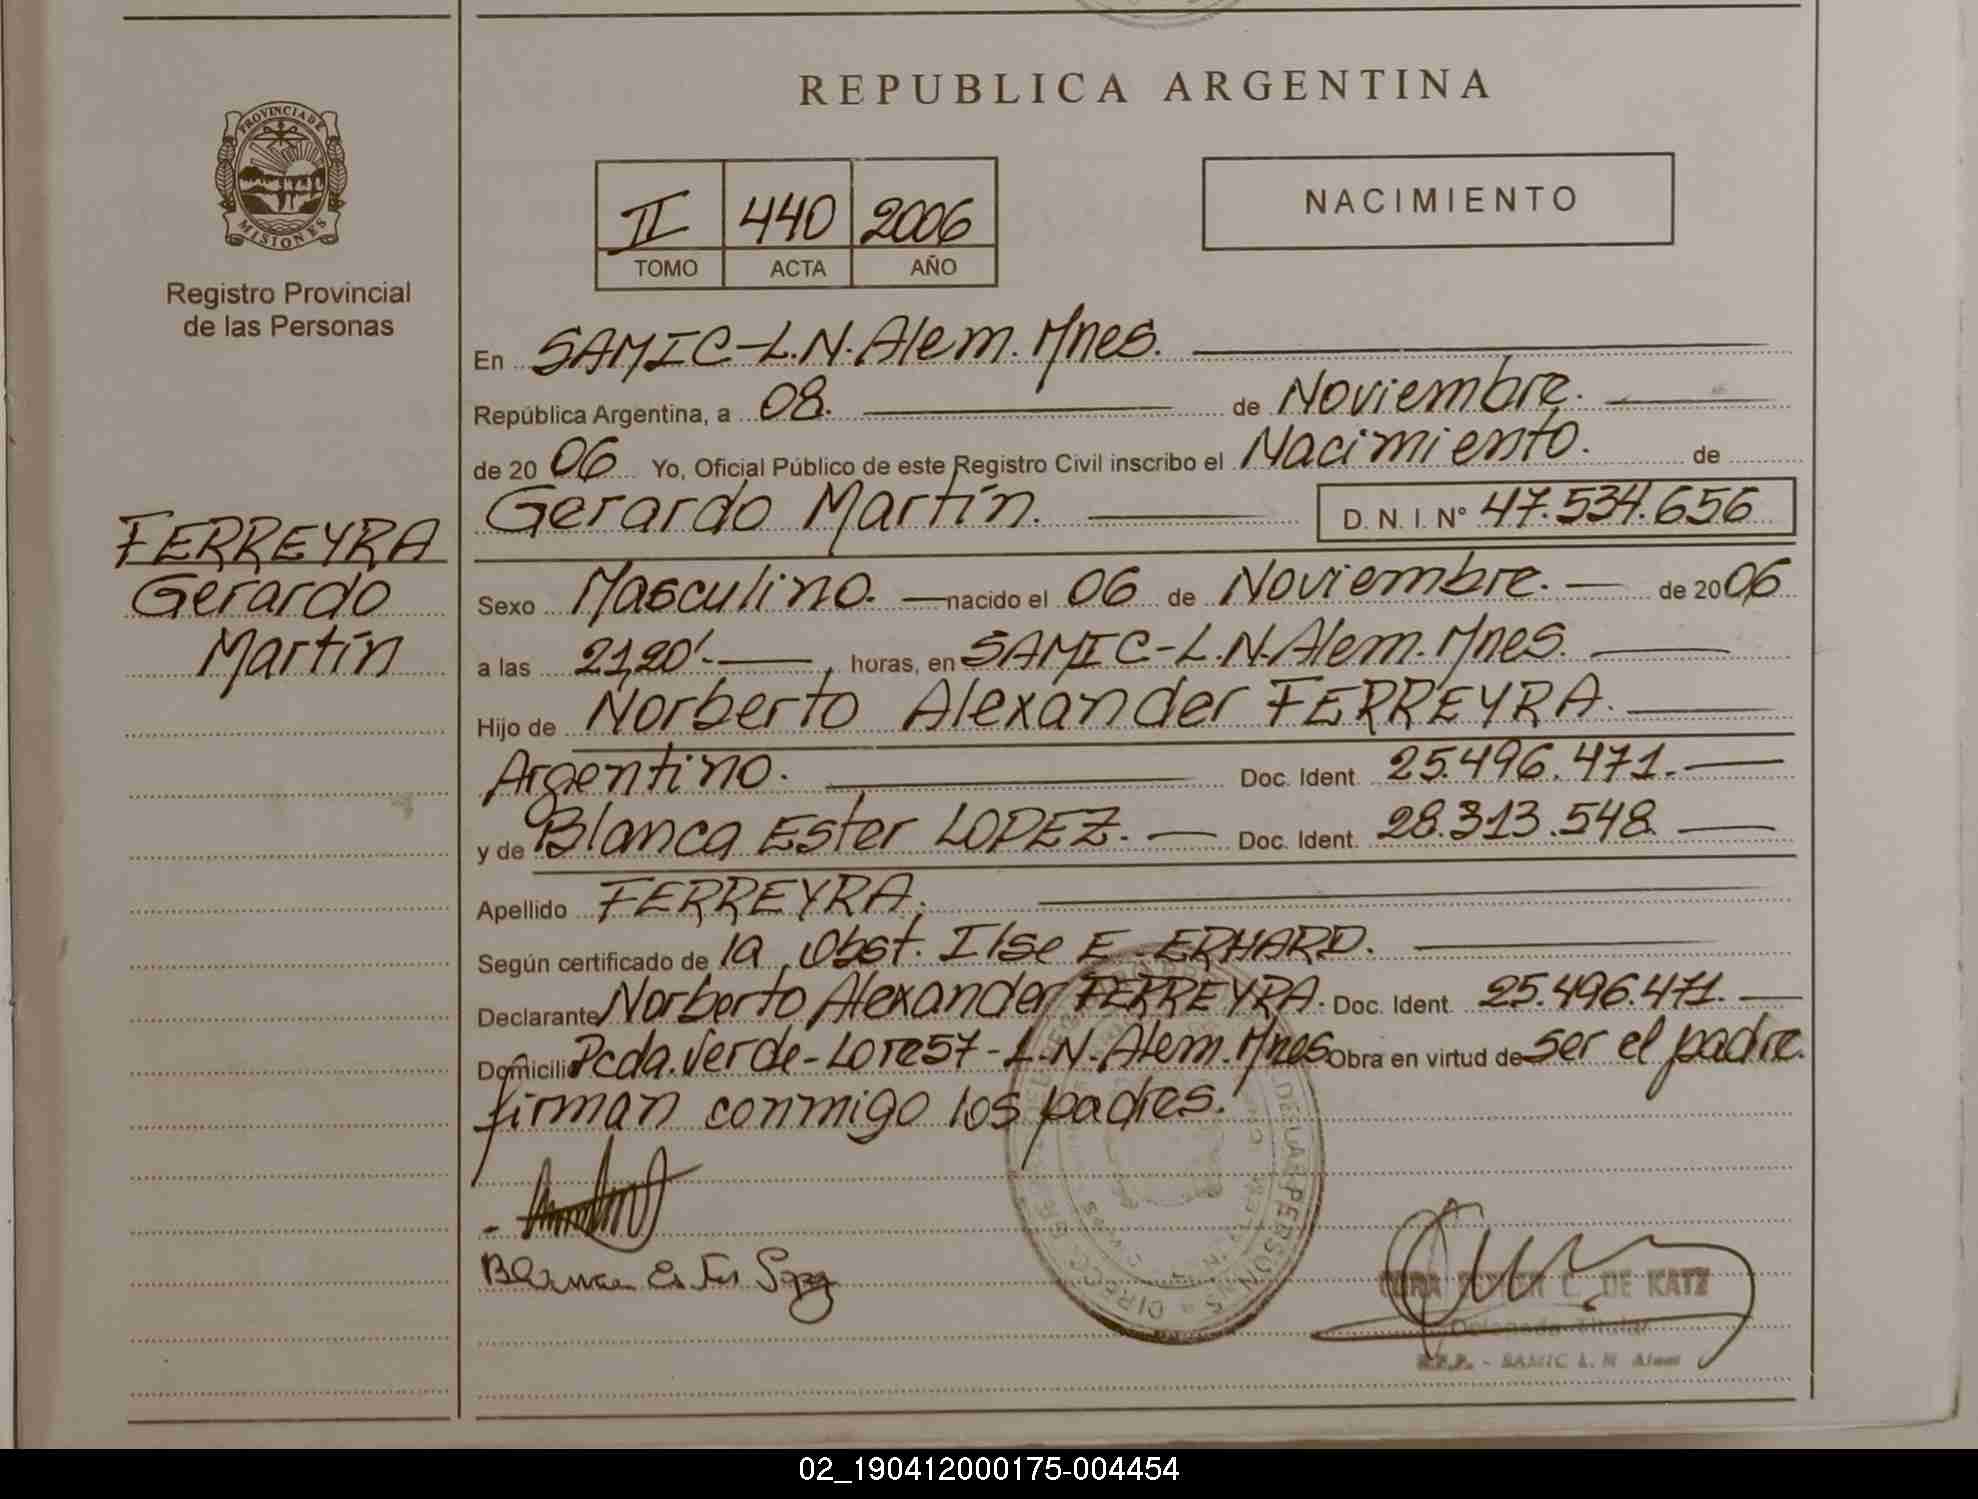 REPUBLICA ARGENTINA
PROVINCIA DE
MISIONES
Registro Provincial
de las Personas
II 440 2006
TOMO ACTA AÑO
NACIMIENTO
En SAMIC-L.N.Alem.Mnes.
República Argentina, a 08. de Noviembre.
de 2006 Yo, Oficial Público de este Registro Civil inscribo el Nacimiento. de
Gerardo Martín. D. N. I. N° 47.534.656
FERREYRA
Gerardo
Martín
Sexo Masculino. nacido el 06 de Noviembre. de 2006
a las 21,20'. horas, en SAMIC-L.N.Alem.Mnes.
Hijo de Norberto Alexander FERREYRA.
Argentino. Doc. Ident. 25.496.471.
y de Blanca Ester LOPEZ. Doc. Ident. 28.313.548.
Apellido FERREYRA.
Según certificado de la Obst. Ilse E. ERHARD.
Declarante Norberto Alexander FERREYRA. Doc. Ident. 25.496.471.
Domicilio Pcda.Verde-Lote57-L.N.Alem.Mnes Obra en virtud de ser el padre.
firman conmigo los padres.
Blanca
C. DE KATZ
Delegada Titular
R.P.P. - SAMIC L. N Alem
02_190412000175-004454